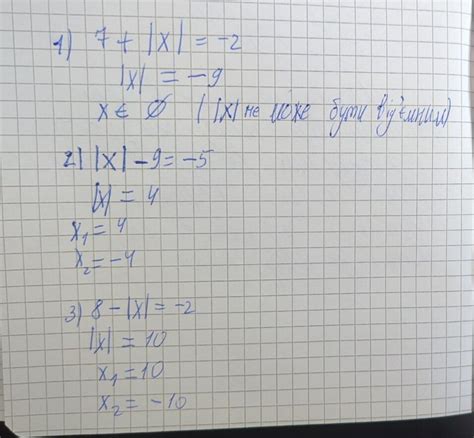 1) 7 + |x| = -2
|x| = -9
x ∈ ∅ (|x| не може бути від'ємним)
2) |x| - 9 = -5
|x| = 4
x₁ = 4
x₂ = -4
3) 8 - |x| = -2
|x| = 10
x₁ = 10
x₂ = -10